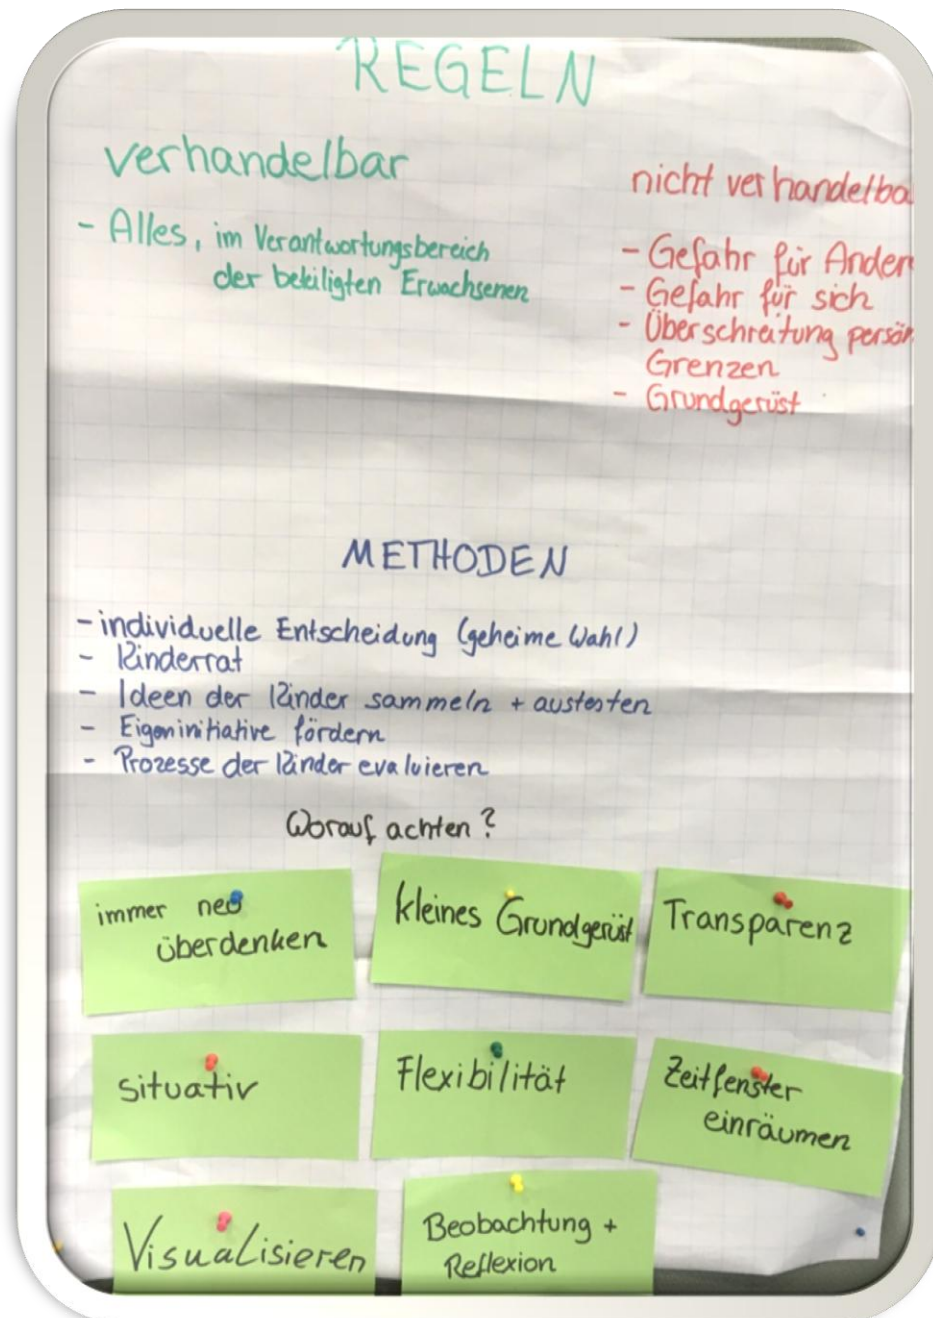 REGELN
verhandelbar
- Alles, im Verantwortungsbereich
der beteiligten Erwachsenen
nicht verhandelba
- Gefahr für Ander
- Gefahr für sich
- Überschreitung persön
Grenzen
- Grundgerüst
METHODEN
- individuelle Entscheidung (geheime Wahl)
- Kinderrat
- Ideen der Kinder sammeln + austesten
- Eigeninitiative fördern
- Prozesse der Kinder evaluieren
Worauf achten?
immer neu
überdenken
kleines Grundgerüst
Transparenz
situativ
Flexibilität
Zeitfenster
einräumen
Visualisieren
Beobachtung +
Reflexion